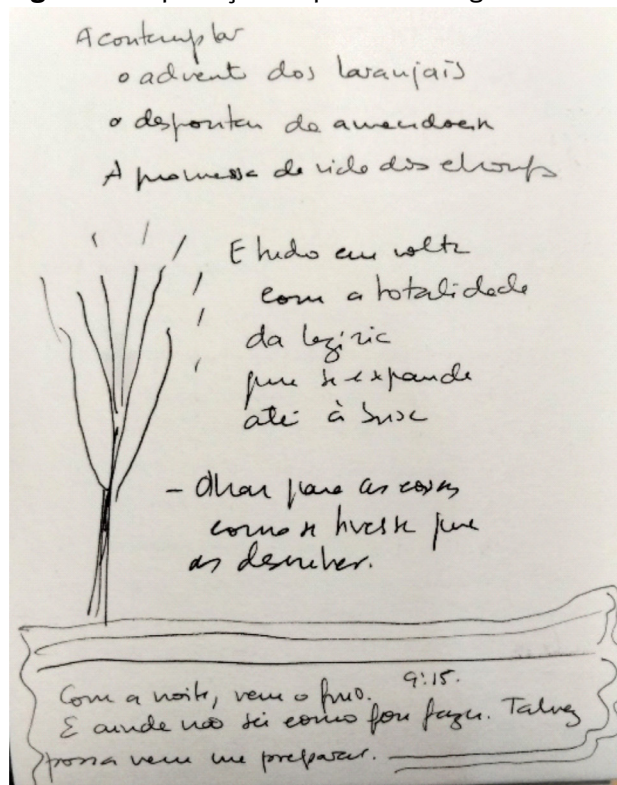 A contemplar
o advento dos laranjais
o despontar da amendoeira
A promessa de vida dos choupos
E tudo em volta
com a totalidade
da lezíria
que se expande
até à
- Olhar para as coisas
como se tivesse que
as descrever.
Com a noite, vem o frio. 9:15.
E ainda não sei como vou fazer. Talvez
possa vir me preparar.